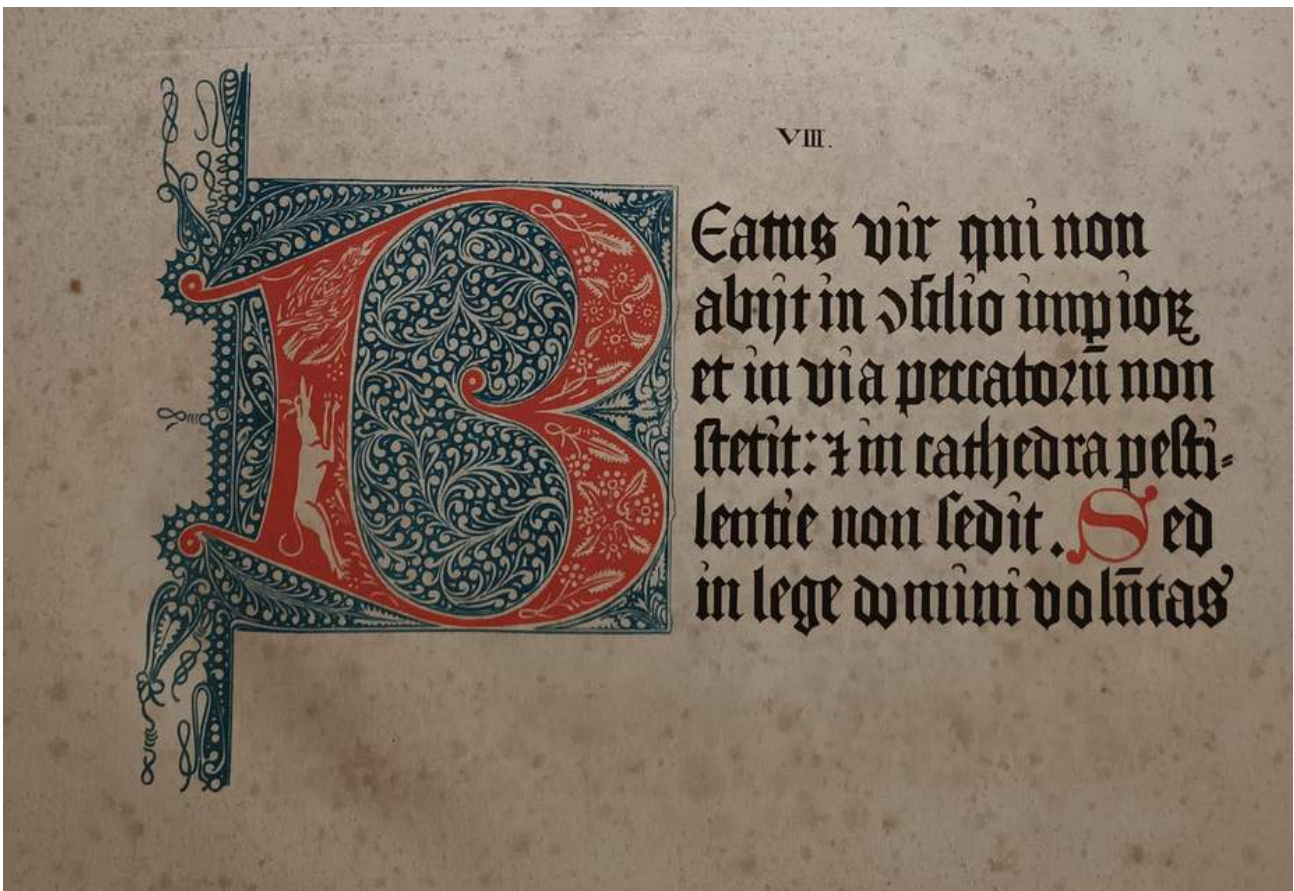 VIII.
BEatus vir qui non
abijt in ꝯsilio impioꝝ
et in via peccatoꝛū non
stetit: ⁊ in cathedra pesti-
lentie non sedit. Sed
in lege domini volūtas